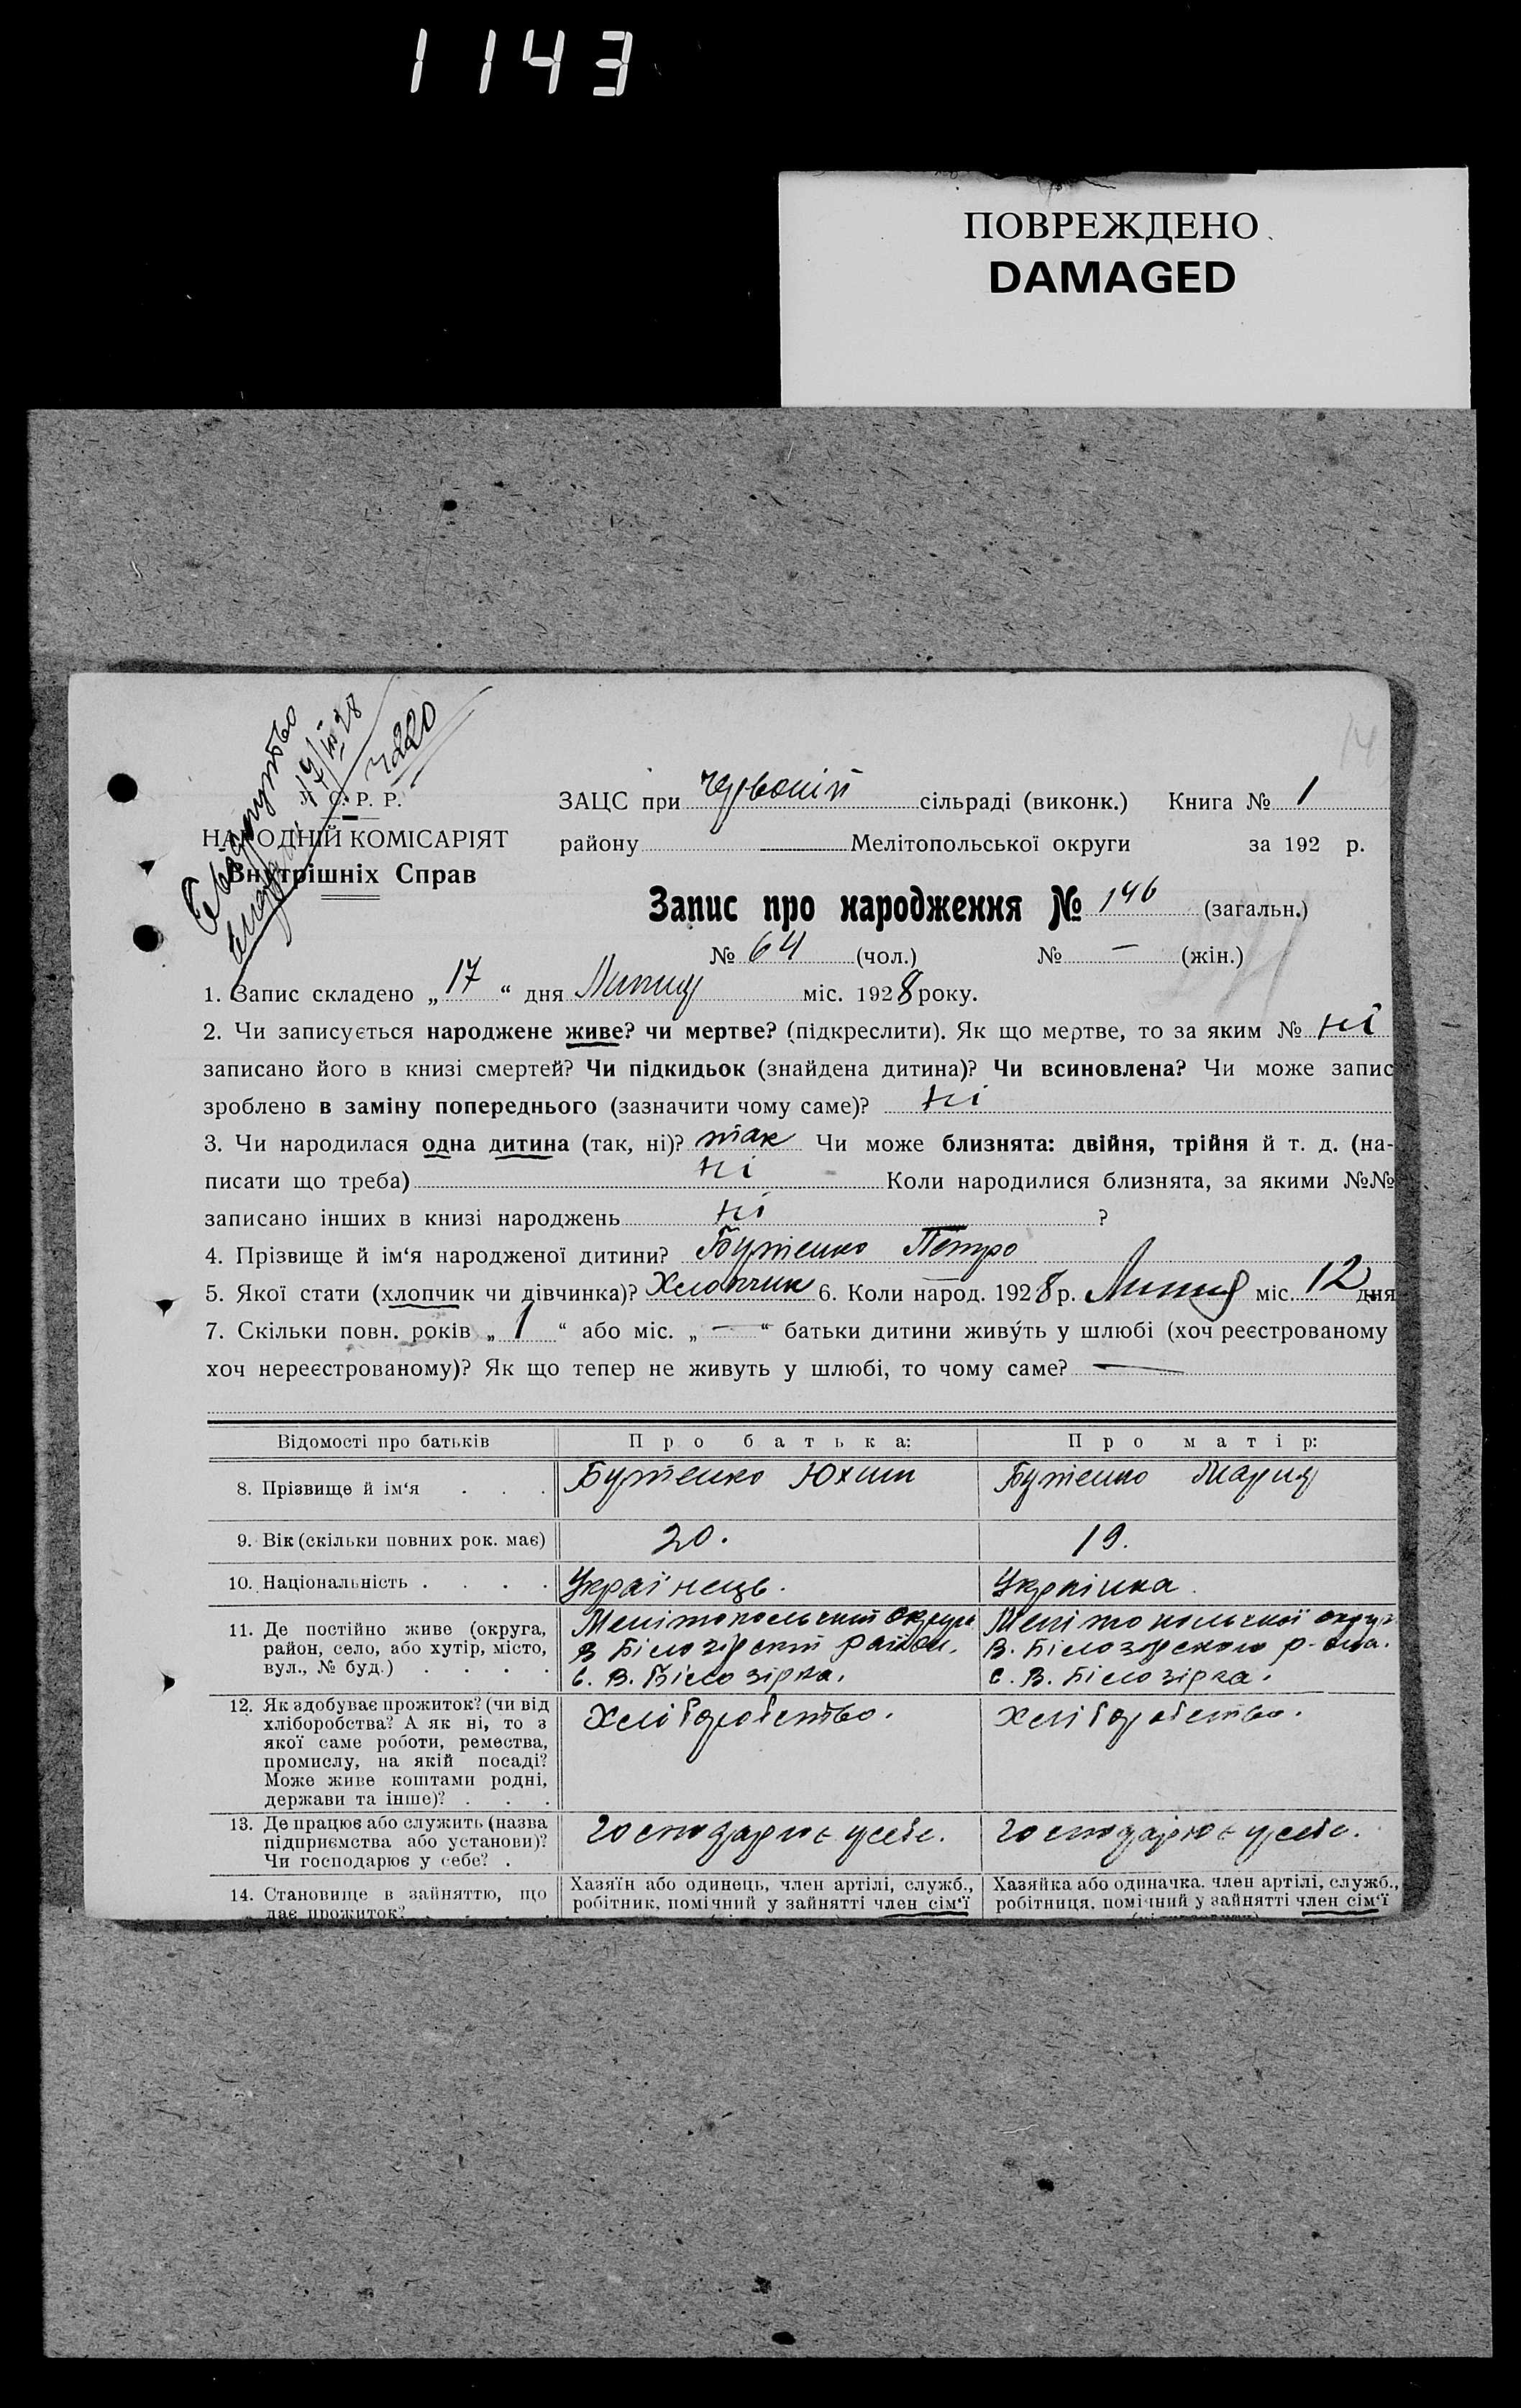 1143
ПОВРЕЖДЕНО
DAMAGED
14
4220
С. Р. Р.
НАРОДНІЙ КОМІСАРІЯТ
Внутрішніх Справ
ЗАЦС при Червоній сільраді (виконк.) Книга № 1
району Мелітопольської округи за 192 р.
Запис про народження № 146 (загальн.)
№ 64 (чол.) № — (жін.)
1. Запис складено „17“ дня Липня міс. 1928 року.
2. Чи записується народжене живе? чи мертве? (підкреслити). Як що мертве, то за яким № ні
записано його в книзі смертей? Чи підкидьок (знайдена дитина)? Чи всиновлена? Чи може запис
зроблено в заміну попереднього (зазначити чому саме)? ні
3. Чи народилася одна дитина (так, ні)? так Чи може близнята: двійня, трійня й т. д. (на-
писати що треба) ні Коли народилися близнята, за якими №№
записано інших в книзі народжень ні ?
4. Прізвище й ім‘я народженої дитини? Бутенко Петро
5. Якої стати (хлопчик чи дівчинка)? Хлопчик 6. Коли народ. 1928 р. Липня міс. 12 дня
7. Скільки повн. років „1“ або міс. „—“ батьки дитини живуть у шлюбі (хоч реєстрованому
хоч нереєстрованому)? Як що тепер не живуть у шлюбі, то чому саме? —
Відомості про батьків Про батька: Про матір:
8. Прізвище й ім‘я . . . Бутенко Юхим Бутенко Мария
9. Вік (скільки повних рок. має) 20. 19.
10. Національність . . . . Українець. Українка.
11. Де постійно живе (округа, Мелітопольский Округи Мелітопольської округи
район, село, або хутір, місто, В Білозірский район. В. Білозірского р-она.
вул., № буд.) . . . . с. В. Білозірка. с. В. Білозірка.
12. Як здобуває прожиток? (чи від Хліборобство. Хліборобство.
хліборобства? А як ні, то з
якої саме роботи, ремества,
промислу, на якій посаді?
Може живе коштами родні,
держави та інше)? . . .
13. Де працює або служить (назва господарює у себе. господарює у себе.
підприємства або установи)?
Чи господарює у себе? .
14. Становище в зайняттю, що Хазяїн або одинець, член артілі, служб., Хазяйка або одиначка. член артілі, служб.,
дає прожиток? . . . . робітник, помічний у зайнятті член сім‘ї робітниця, помічний у зайнятті член сім‘ї